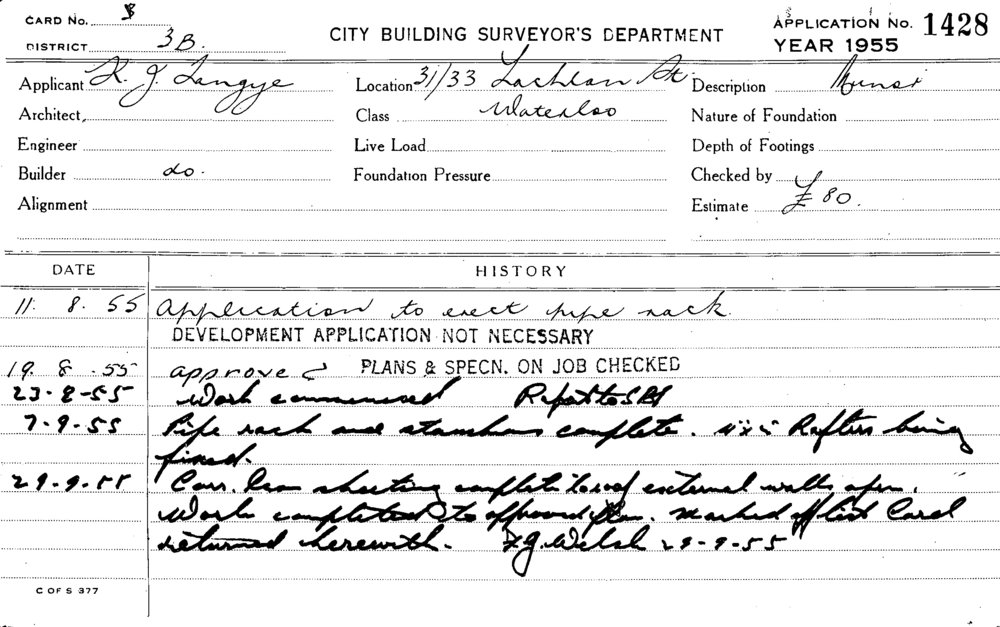 CARD No. 3
DISTRICT 3B.
CITY BUILDING SURVEYOR'S DEPARTMENT
APPLICATION No. 1428
YEAR 1955
Applicant K. J. Langye Location 31/33 Lachlan St Description
Architect, Class Waterloo Nature of Foundation
Engineer Live Load Depth of Footings
Builder do. Foundation Pressure Checked by
Alignment Estimate £ 80.
DATE HISTORY
11. 8. 55 Application to erect pipe rack.
DEVELOPMENT APPLICATION NOT NECESSARY
19. 8. 55 approved PLANS & SPECN. ON JOB CHECKED
23-8-55 Work commenced Report to
7-9-55 Pipe rack and stanchions complete. Rafters being
fixed.
29-9-55 Corr. Iron sheeting complete to roof external walls open.
Work completed to approved plan. Marked off list Card
returned herewith. J.G. Welsh 29-9-55
C OF S 377